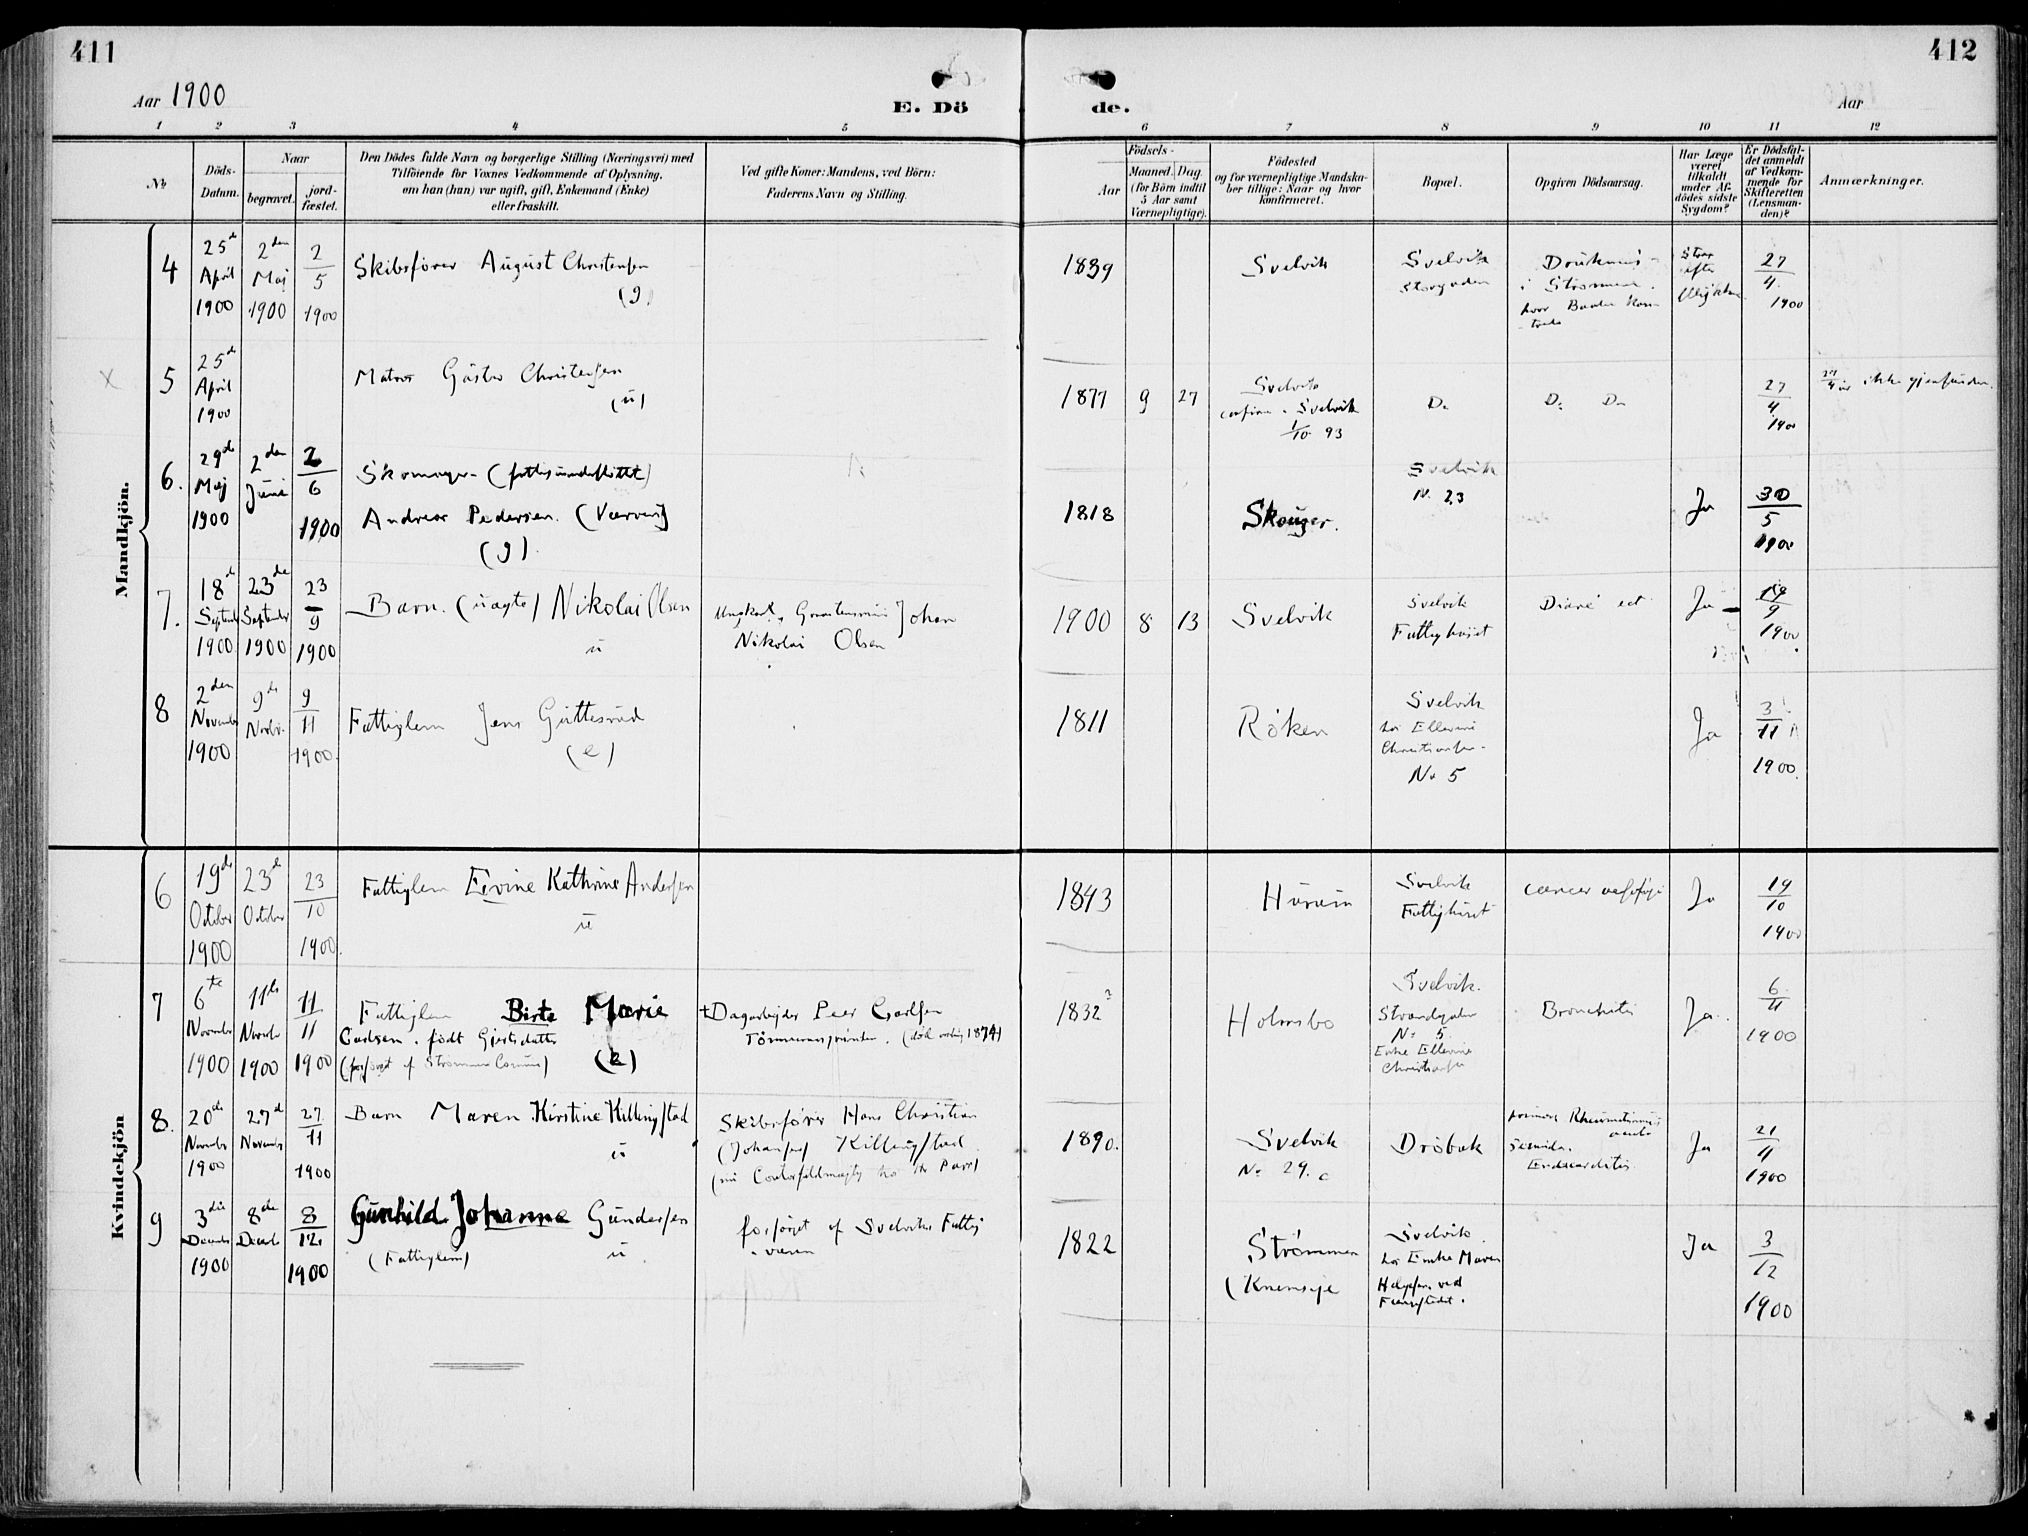 411
412
Aar 1900
E. Dö
de.
Aar
1 2 3 4 5
6 7 8 9 10 11 12
No
Döds-
Datum.
Naar
begravet.
jord-
fæstet.
Den Dödes fulde Navn og borgerlige Stilling (Næringsvei) med
Tilföiende for Voxnes Vedkommende af Oplysning,
om han (hun) var ugift, gift, Enkemand (Enke)
eller fraskilt.
Ved gifte Koner: Mandens, ved Börn:
Faderens Navn og Stilling.
Födsels-
Aar
Maaned. Dag.
(for Börn indtil
5 Aar samt
Værnepligtige).
Födested
og for værnepligtige Mandska-
ber tillige: Naar og hvor
konfirmeret.
Bopæl.
Opgiven Dödsaarsag.
Har Læge
været
tilkaldt
under Af-
dödes sidste
Sygdom?
Er Dödsfal-
det anmeldt
af Vedkom-
mende for
Skifteretten
(Lensman-
den)?
Anmærkninger.
Mandkjön.
4
25de April 1900
2den Maj 1900
2/5 1900
Skibsfører August Christensen
(g)
1839
Svelvik
Svelvik
Storgaden
Druknet
i Strømmen
hvor Baaden
Strax
efter
27/4 1900
5
25de April 1900
Matros Gustav Christensen
(u)
1877 9 27
Svelvik
confirm. i Svelvik
1/10 93
Do
Do Do
27/4 1900
ikke gjenfunden.
6.
29de Maj 1900
2den Juni
2/6 1900
Skomager (fattigunderstøttet)
Andreas Pedersen
(g).
1818
Skouger.
Svelvik
No 23
Ja
30/5 1900
7.
18de September 1900
23de September 1900
23/9 1900
Barn. (uægte) Nikolai Olsen
u
Ungkarl Johan
Nikolai Olsen
1900 8 13
Svelvik
Svelvik
Fattighuset
Diaré
Ja
19/9 1900
8
2den November 1900
9de Novbr.
9/11 1900.
Fattiglem Jens Guttesrud
(e)
1811
Röken
Svelvik
hos Ellevine
Christiansen
No 5
Ja
3/11 1900.
Kvindekjön
6
19de October 1900
23de October
23/10 1900.
Fattiglem Eevine Kathrine Andersen
u
1843
Hurum
Svelvik
Fattighuset
cancer
Ja
19/10 1900
7
6te November 1900
11te Novembr 1900
11/11 1900
Fattiglem Birte Marie
Carlsen, født Gjertsdatter
(forsørget af Strømmens Comune) (e)
+Dagarbeider Peer Carlsen
Tømmeraasgrunden.
1832?
Holmsbo
Svelvik.
Strandgaden
No 5.
Enke Ellevine
Christiansen
Bronchitis
Ja.
6/11 1900
8.
20de November 1900
27de November
27/11 1900
Barn Maren Kirstine Killingstad
u
Skibsfører Hans Christian
(Johansen) Killingstad
1890.
Svelvik
No 29. c
Dröbak
Rheumatismus
Endocarditis
Ja
21/11 1900
9
3die Decembr 1900
8de Decembr
8/12 1900
Gunhild Johanne Gundersen
(Fattiglem) u
forsørget af Svelviks Fattig-
væsen
1822
Strømmen
(Knemseje
Svelvik.
hos Enke Maren
Helgesen ved
Færgestedet.
Ja
3/12 1900